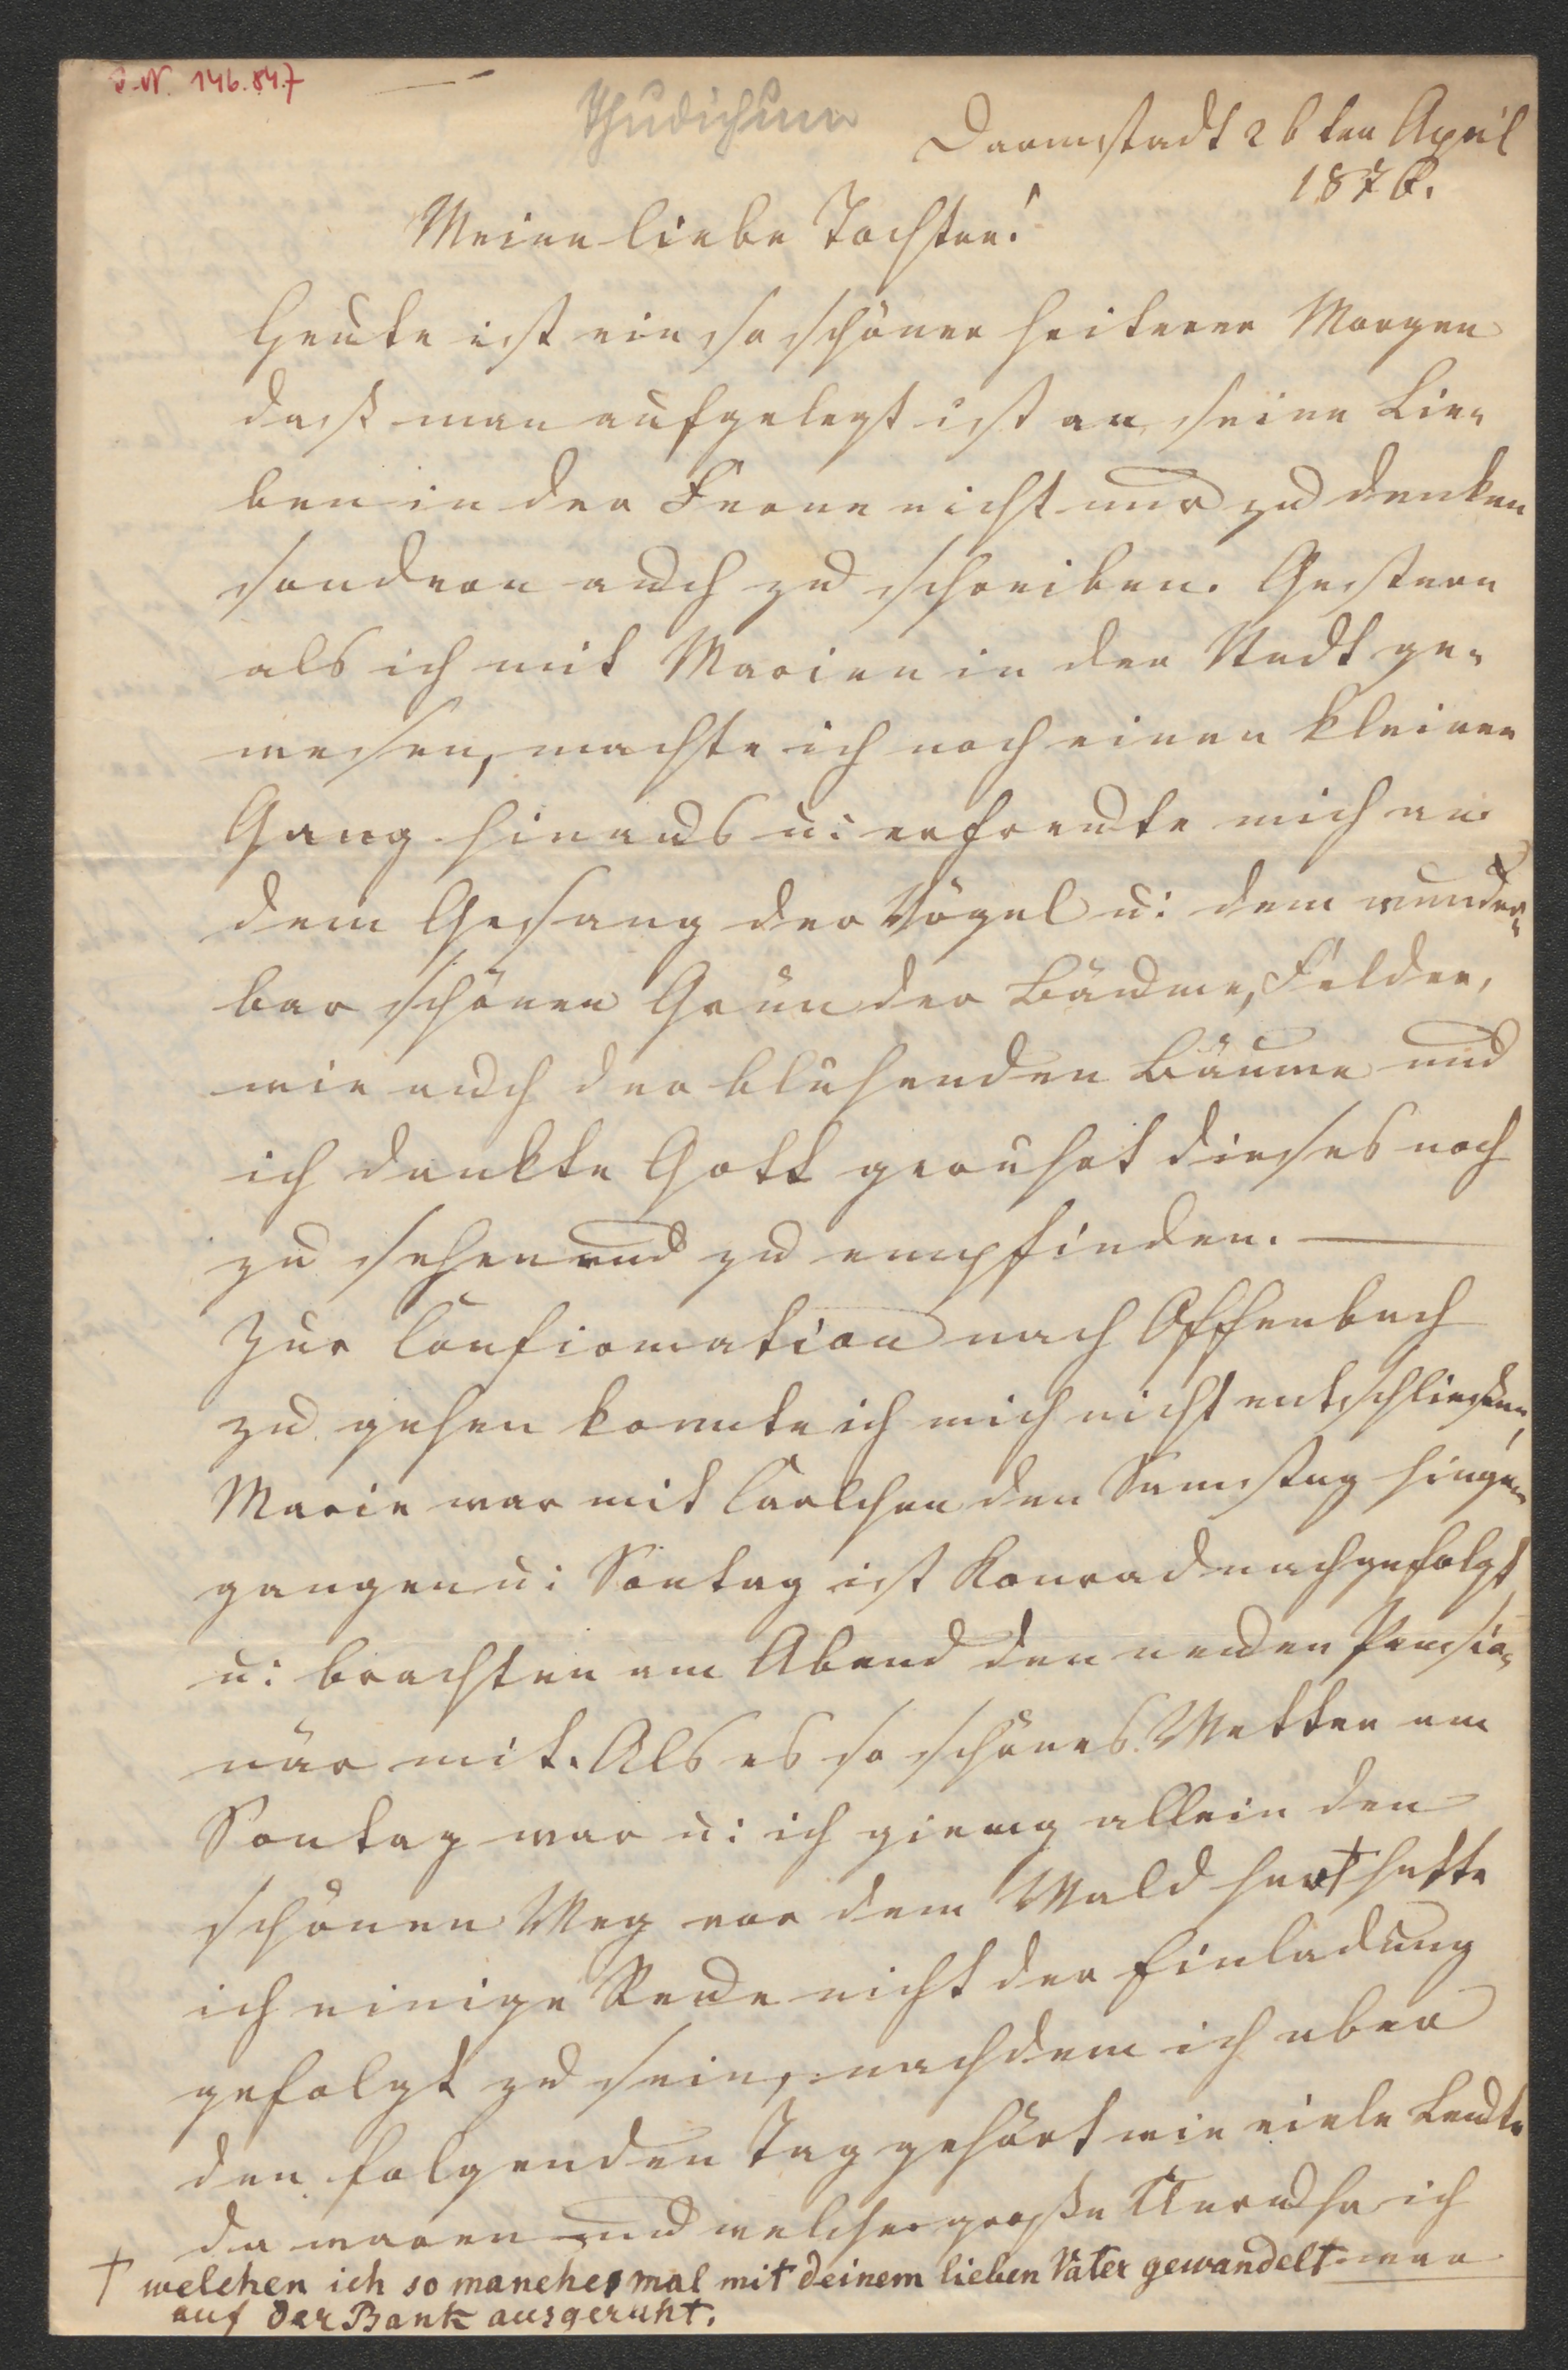 I.N. 146.847
Thudichum
Darmstadt 26ten April
1876.
Meine liebe Tochter!
Heute ist ein so schöner heiterer Morgen
daß man aufgelegt ist an seine Lie-
ben in der Ferne nicht nur zu denken
sondern auch zu schreiben. Gestern
als ich mit Marien in der Stadt ge-
wesen, machte ich noch einen kleinen
Gang hinaus u: erfreute mich an
dem Gesang der Vögel u: dem wunder-
bar schönen Grün der Bäume, Felder,
wie auch der blühenden Bäume und
ich dankte Gott gerührt dieses noch
zu sehen und zu empfinden. —
Zur Confirmation nach Offenbach
zu gehen konnte ich mich nicht entschließen,
Marie war mit Carlchen den Samstag hinge-
gangen u: Sontag ist Konrad nachgefolgt
u: brachten am Abend den neuen Pensio-
när mit. Als es so schönes Wetter am
Sontag war u: ich gieng allein den
schönen Weg vor dem Wald her † hatte
ich einige Reue nicht der Einladung
gefolgt zu sein, nachdem ich aber
den folgenden Tag gehört wie viele Leute
da waren und welcher große Unruhe ich
† welchen ich so manchesmal mit deinem lieben Vater gewandelt
auf der Bank ausgeruht.